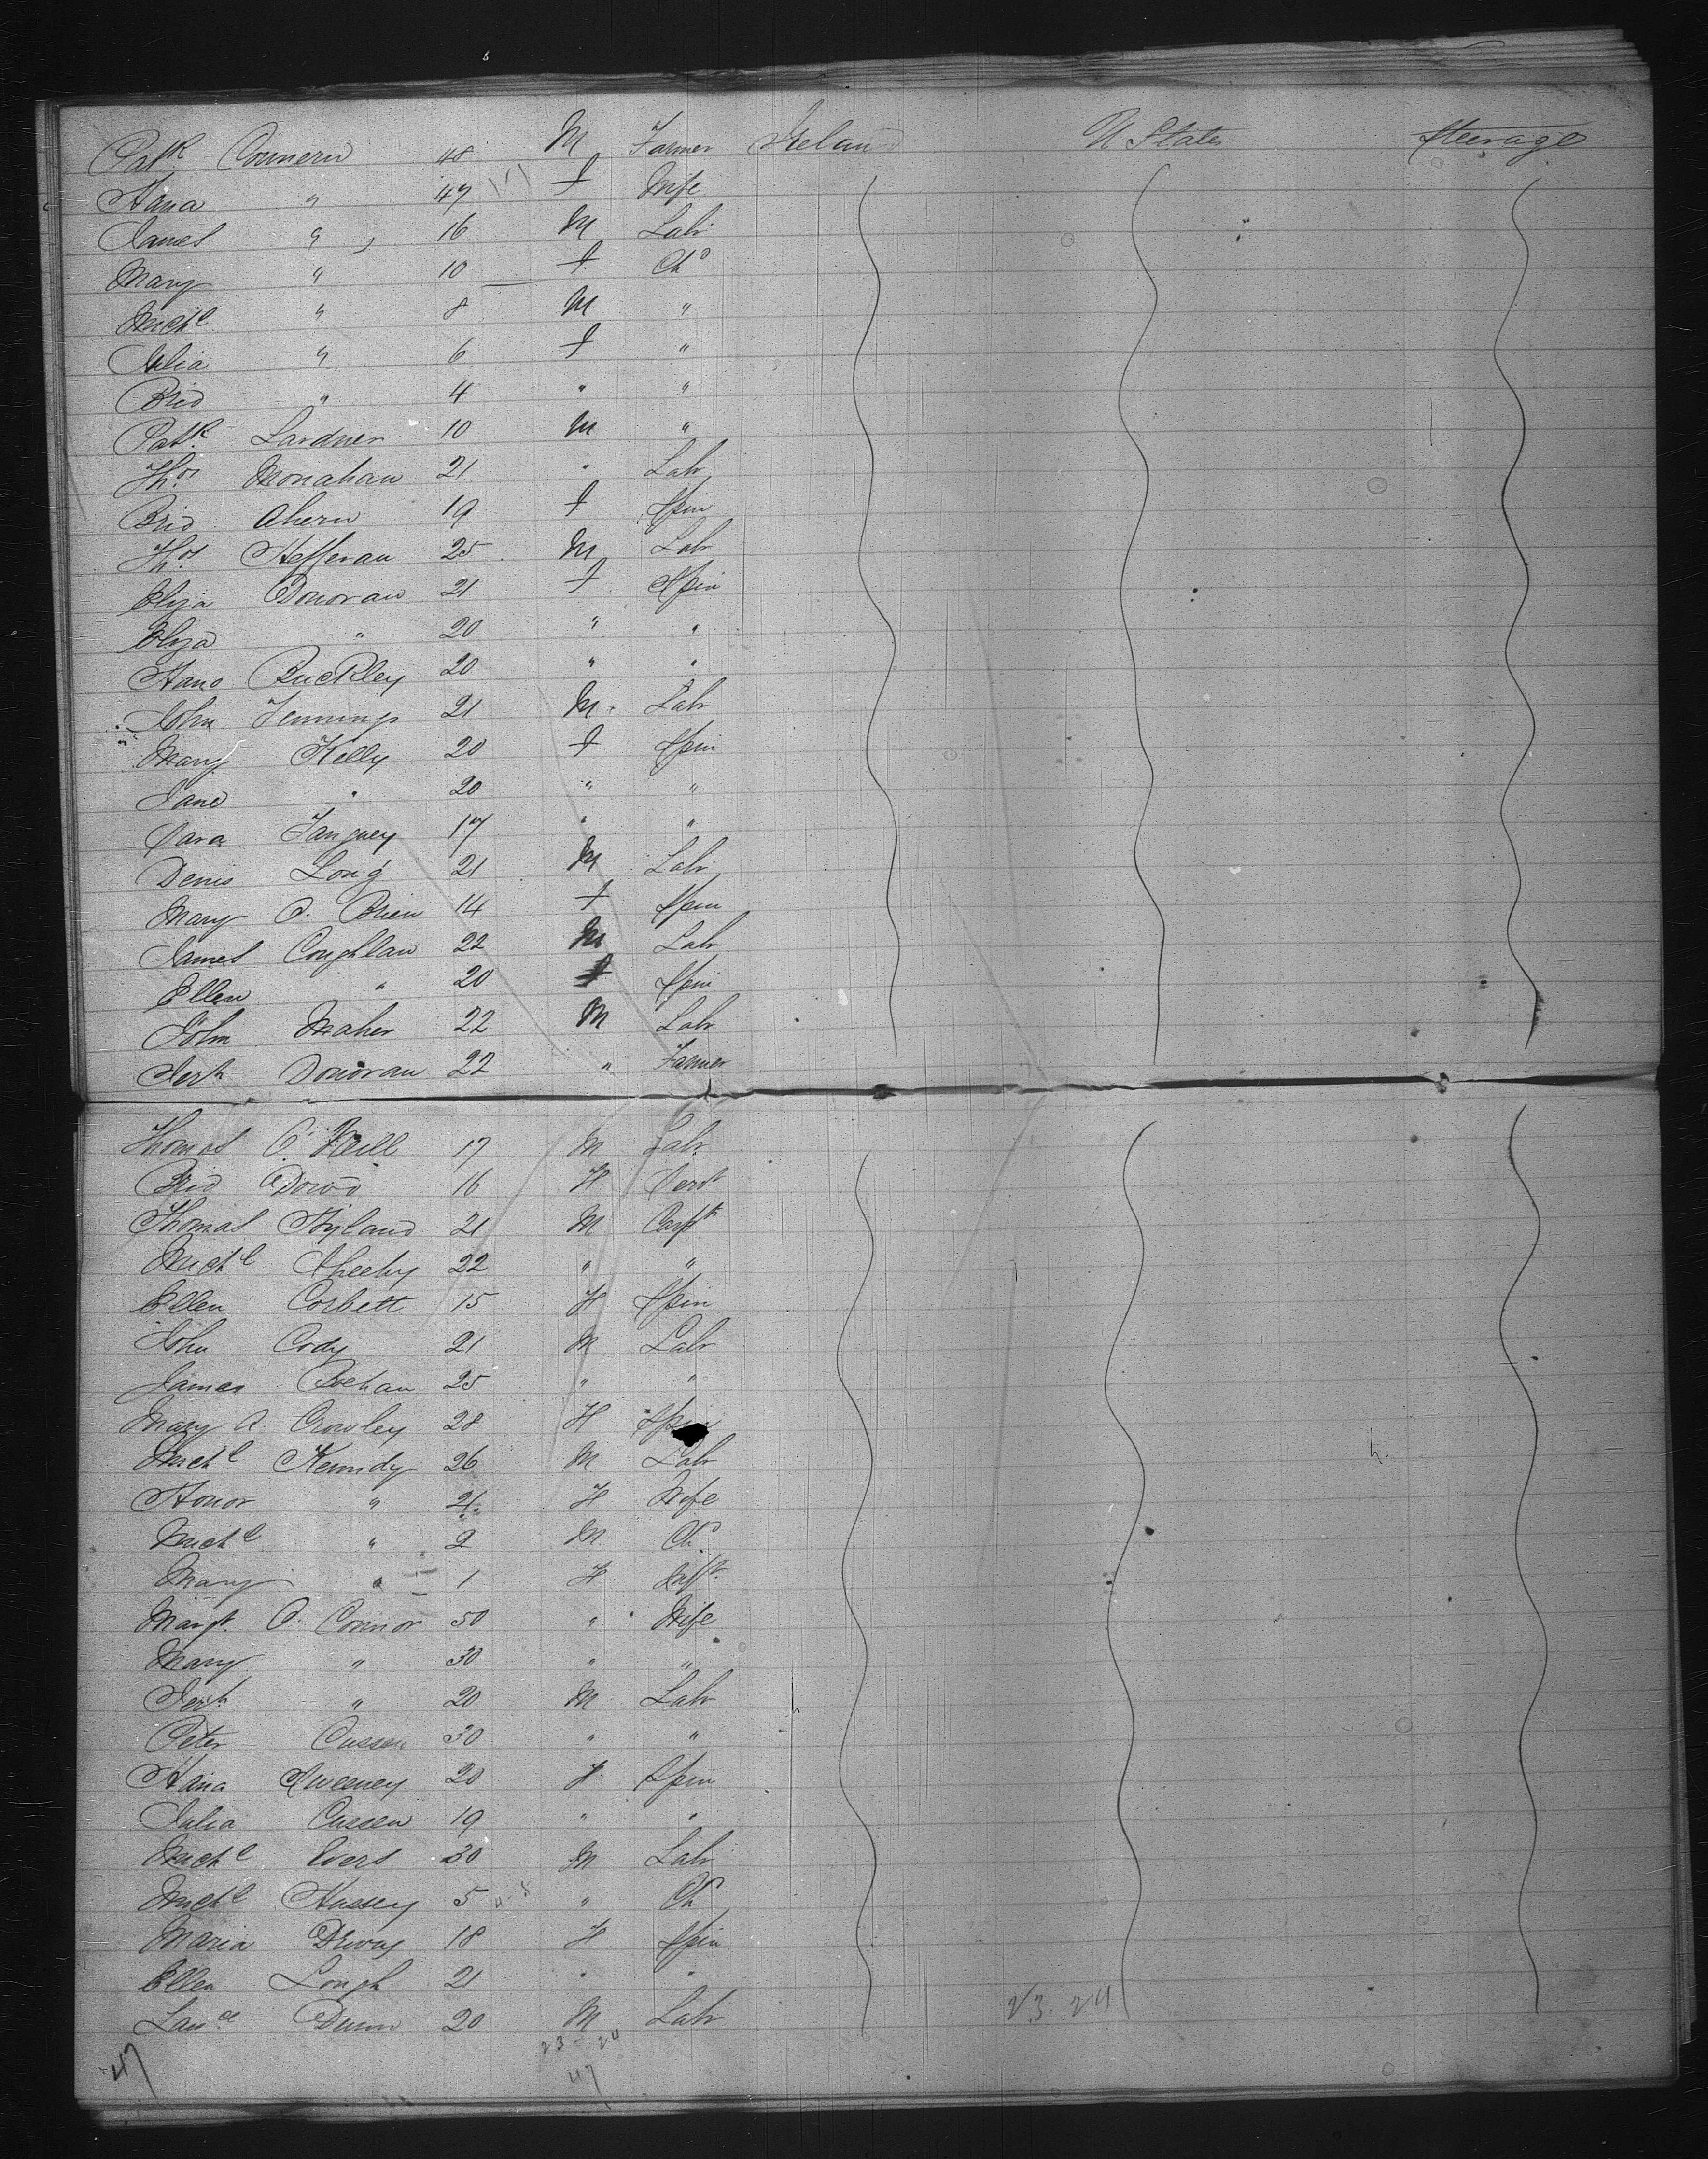 Patk Connern 48 M Farmer Ireland U States Steerage
Hana " 47 f Wife
James " 16 M Labr
Mary " 10 f Chd
Michl " 8 M "
Julia " 6 f "
Brid " 4 " "
Patk Lardner 10 M "
Thos Monahan 21 " Labr
Brid Ahern 19 f Spin
Thos Heffernan 25 M Labr
Eliza Donovan 21 f Spin
Eliza " 20 " "
Hano Buckley 20 " "
John Jennings 21 M Labr
Mary Kelly 20 f Spin
Jane " 20 " "
Sara Tanguey 17 " "
Denis Long 21 M Labr
Mary O. Brien 14 f Spin
James Coughlan 22 M Labr
Ellen " 20 f Spin
John Maher 22 M Labr
Jerh Donovan 22 " Farmer
Thomas O'Neill 17 M Labr
Brid ODowd 16 F Servt
Thomas Hyland 21 M Carpt
Michl Sheehy 22 " "
Ellen Corbett 15 F Spin
John Cody 21 M Labr
James 25 " "
Mary A. Crowley 28 F Spin
Michl Kenndy 26 M Labr
Honor " 21 F Wife
Michl " 2 M. Ch
Mary " 1 F Inft
Margt. O. Connor 50 " Wife
Mary " 30 " "
Jerh " 20 M Labr
Peter Cussen 30 " "
Hana Sweeney 20 F Spin
Julia Cussen 19 " "
Michl Evers 30 M Labr
Michl Hussey 5 " Ch
Maria 18 F Spin
Ellen Lough 21 " "
Lauce Dunn 20 M Labr
23. 24
23 - 24
47 47